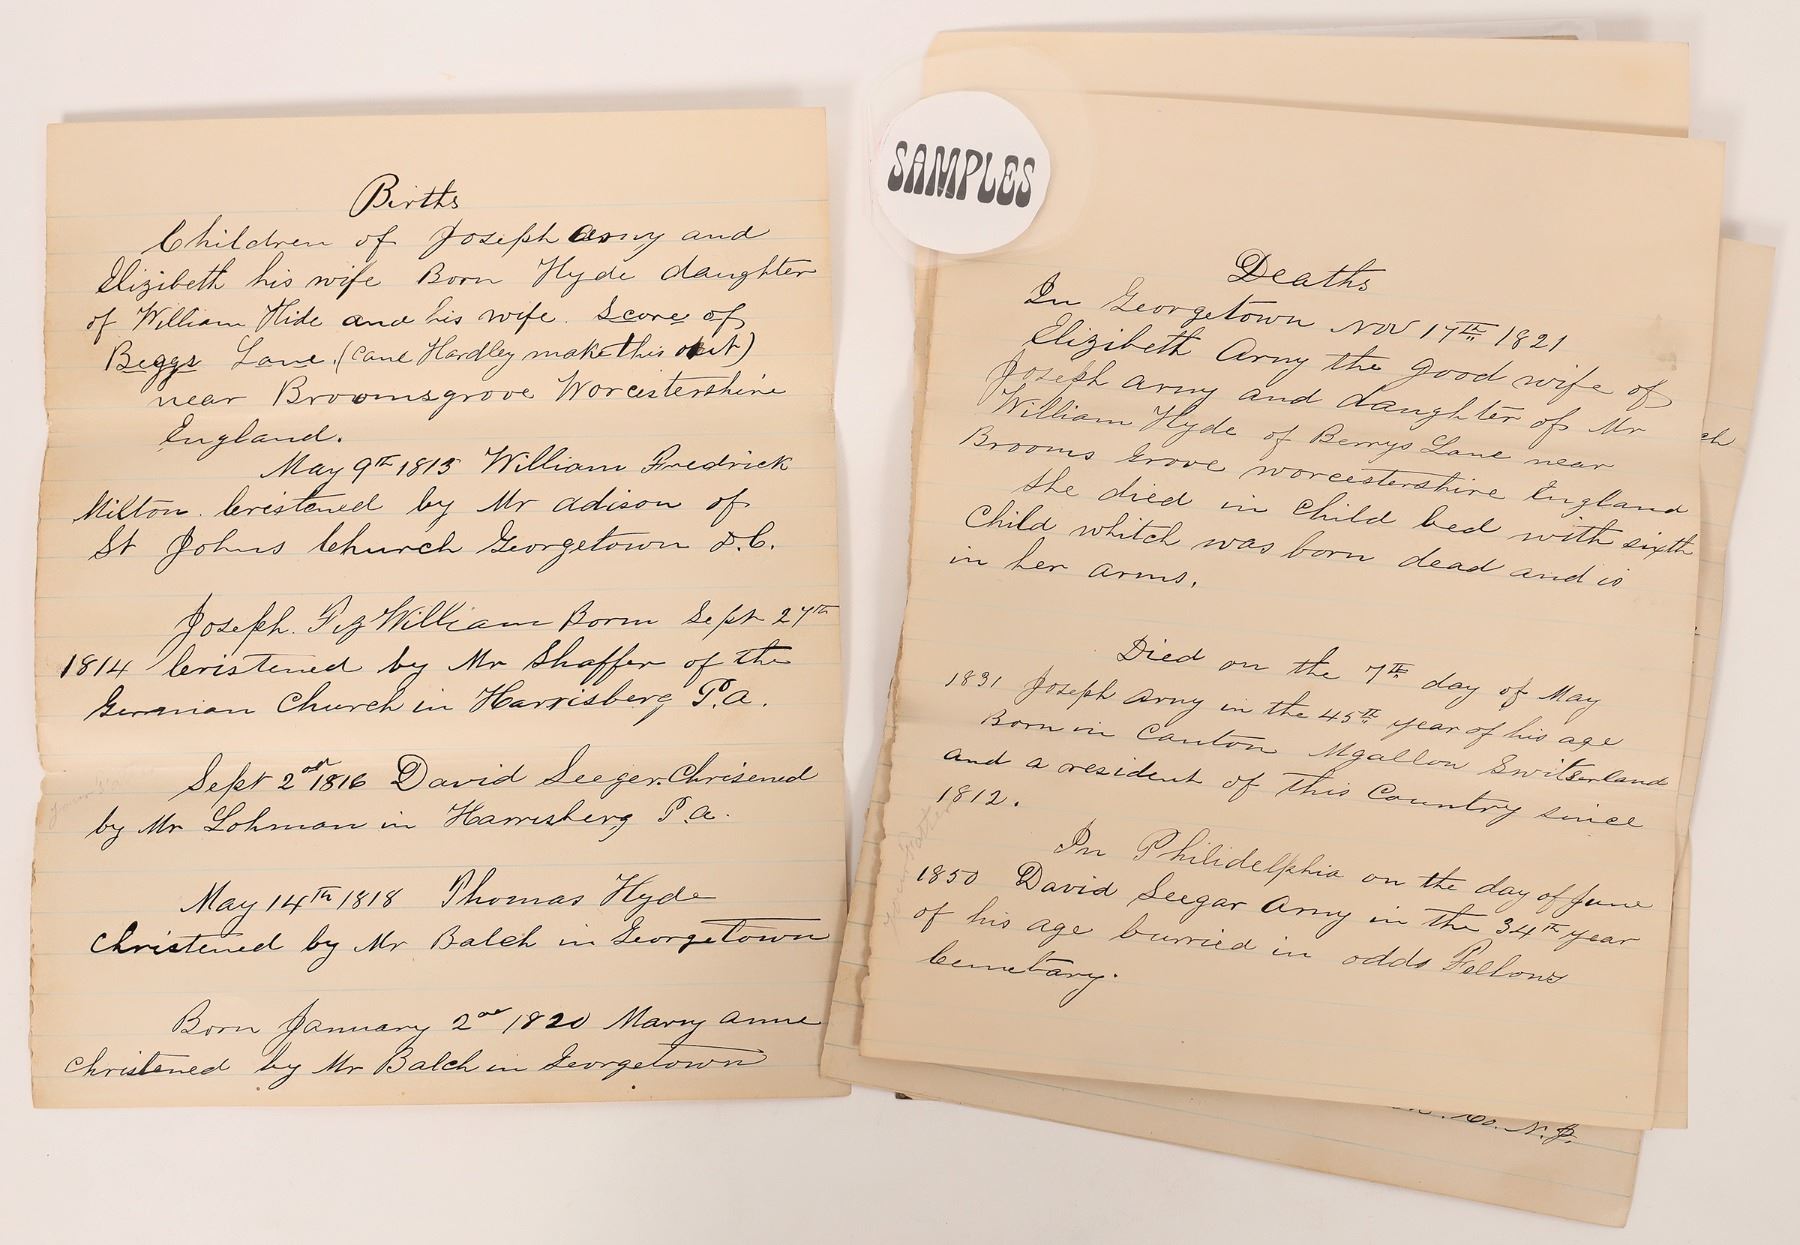 Births
Children of Joseph Arny and
Elizibeth his wife Born Hyde daughter
of William Hide and his wife. Score of
Beggs Lane. (cane Hardley make this out)
near Broomsgrove Worcestershire
England.
May 9th 1813 William Fredrick
Milton. Cristened by Mr Adison of
St Johns Church Georgetown D.C.
Joseph. FizWilliam Born Sept 27th
1814 Cristened by Mr Shaffer of the
German Church in Harrisberg P.a.
Sept 2nd 1816 David Seeger. Chrisened
by Mr Lohman in Harrisberg P.a.
May 14th 1818 Thomas Hyde
Christened by Mr Balch in Georgetown
Born January 2nd 1820 Mary Anne
Christened by Mr Balch in Georgetown
SAMPLES
Deaths
In Georgetown Nov 17th 1821
Elizibeth Arny the good wife of
Joseph Arny and daughter of Mr
William Hyde of Berrys Lane near
Brooms Grove Worcestershire England
She died in Child bed with sixth
Child whitch was born dead and is
in her arms.
Died on the 7th day of May
1831 Joseph Arny in the 45th year of his age
Born in Canton Mgallon Switserland
and a resident of this Country since
1812.
In Philidelphia on the day of June
1850 David Seegar Arny in the 34th year
of his age burried in odds Fellows
Cemetary.
ch
Co. N.J.